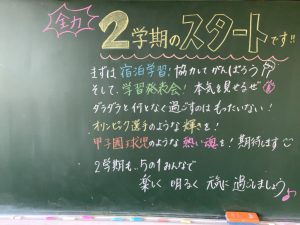 全力
2学期のスタートです!!
まずは宿泊学習!協力してがんばろう
そして、学習発表会!本気を見せるぜ
ダラダラと何となく過ごすのはもったいない!
オリンピック選手のような輝きを!
甲子園球児のような熱い魂を!期待します
2学期も、5の1みんなで
楽しく 明るく 元気に過ごしましょう♪